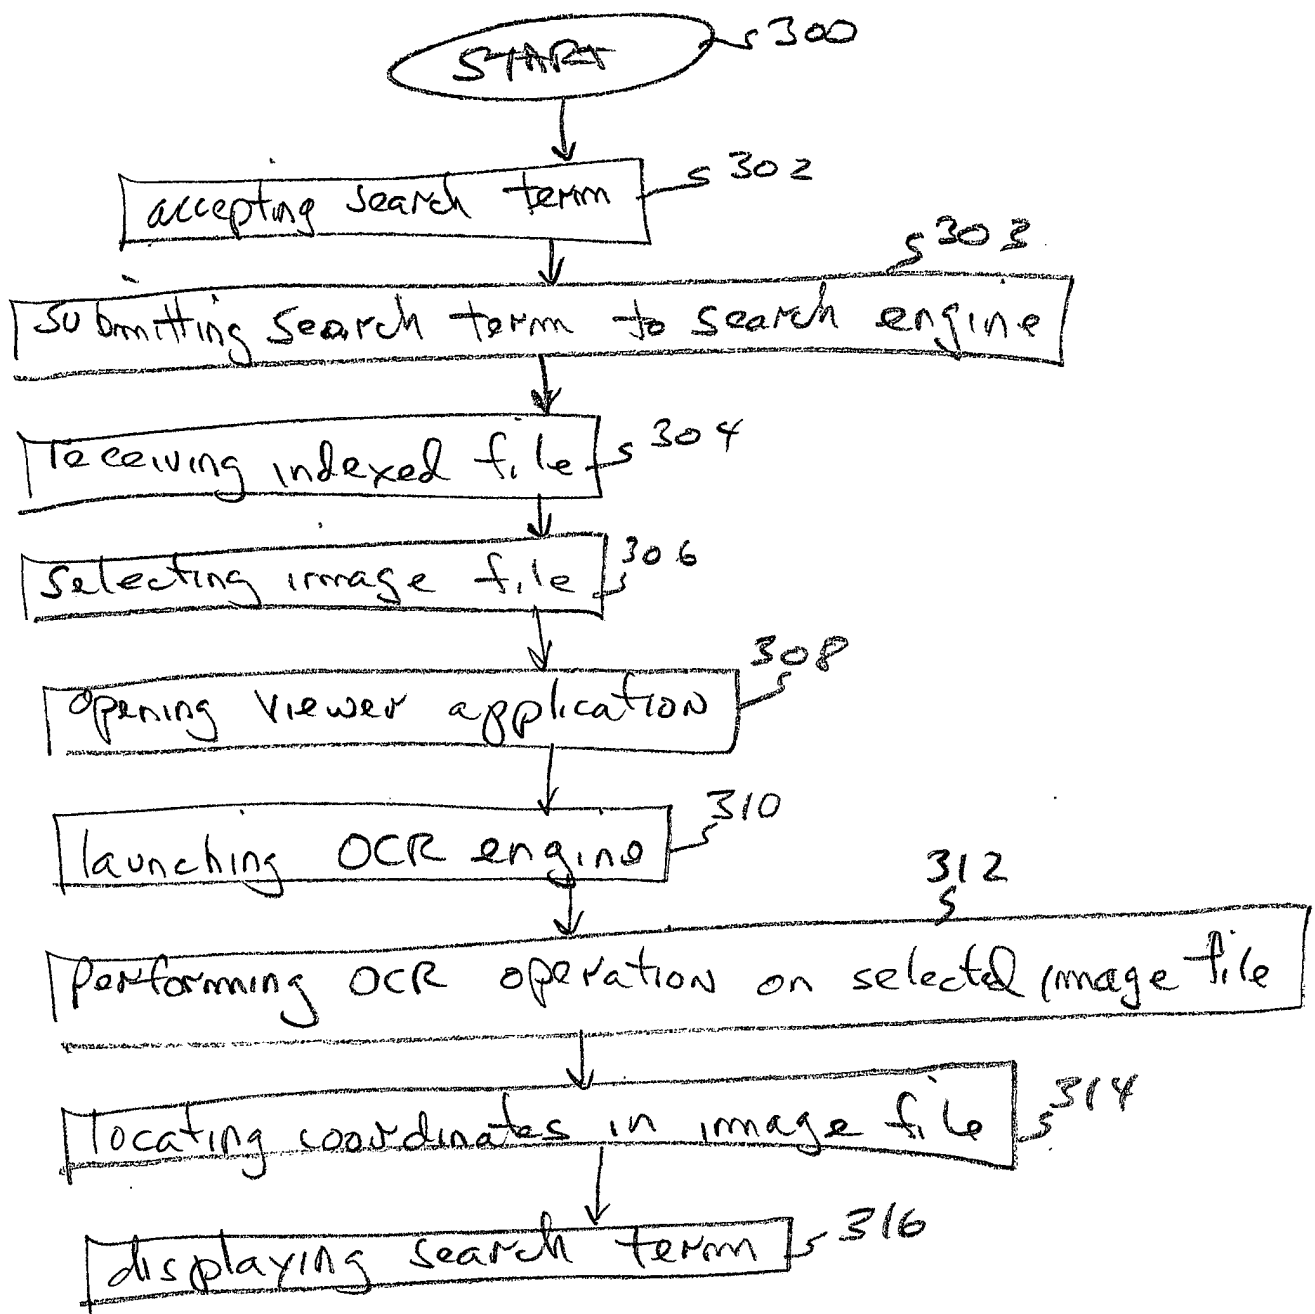 START 300
accepting search term 302
303
submitting search term to search engine
receiving indexed file 304
selecting image file 306
opening viewer application 308
launching OCR engine 310
312
performing OCR operation on selected image file
locating coordinates in image file 314
displaying search term 316